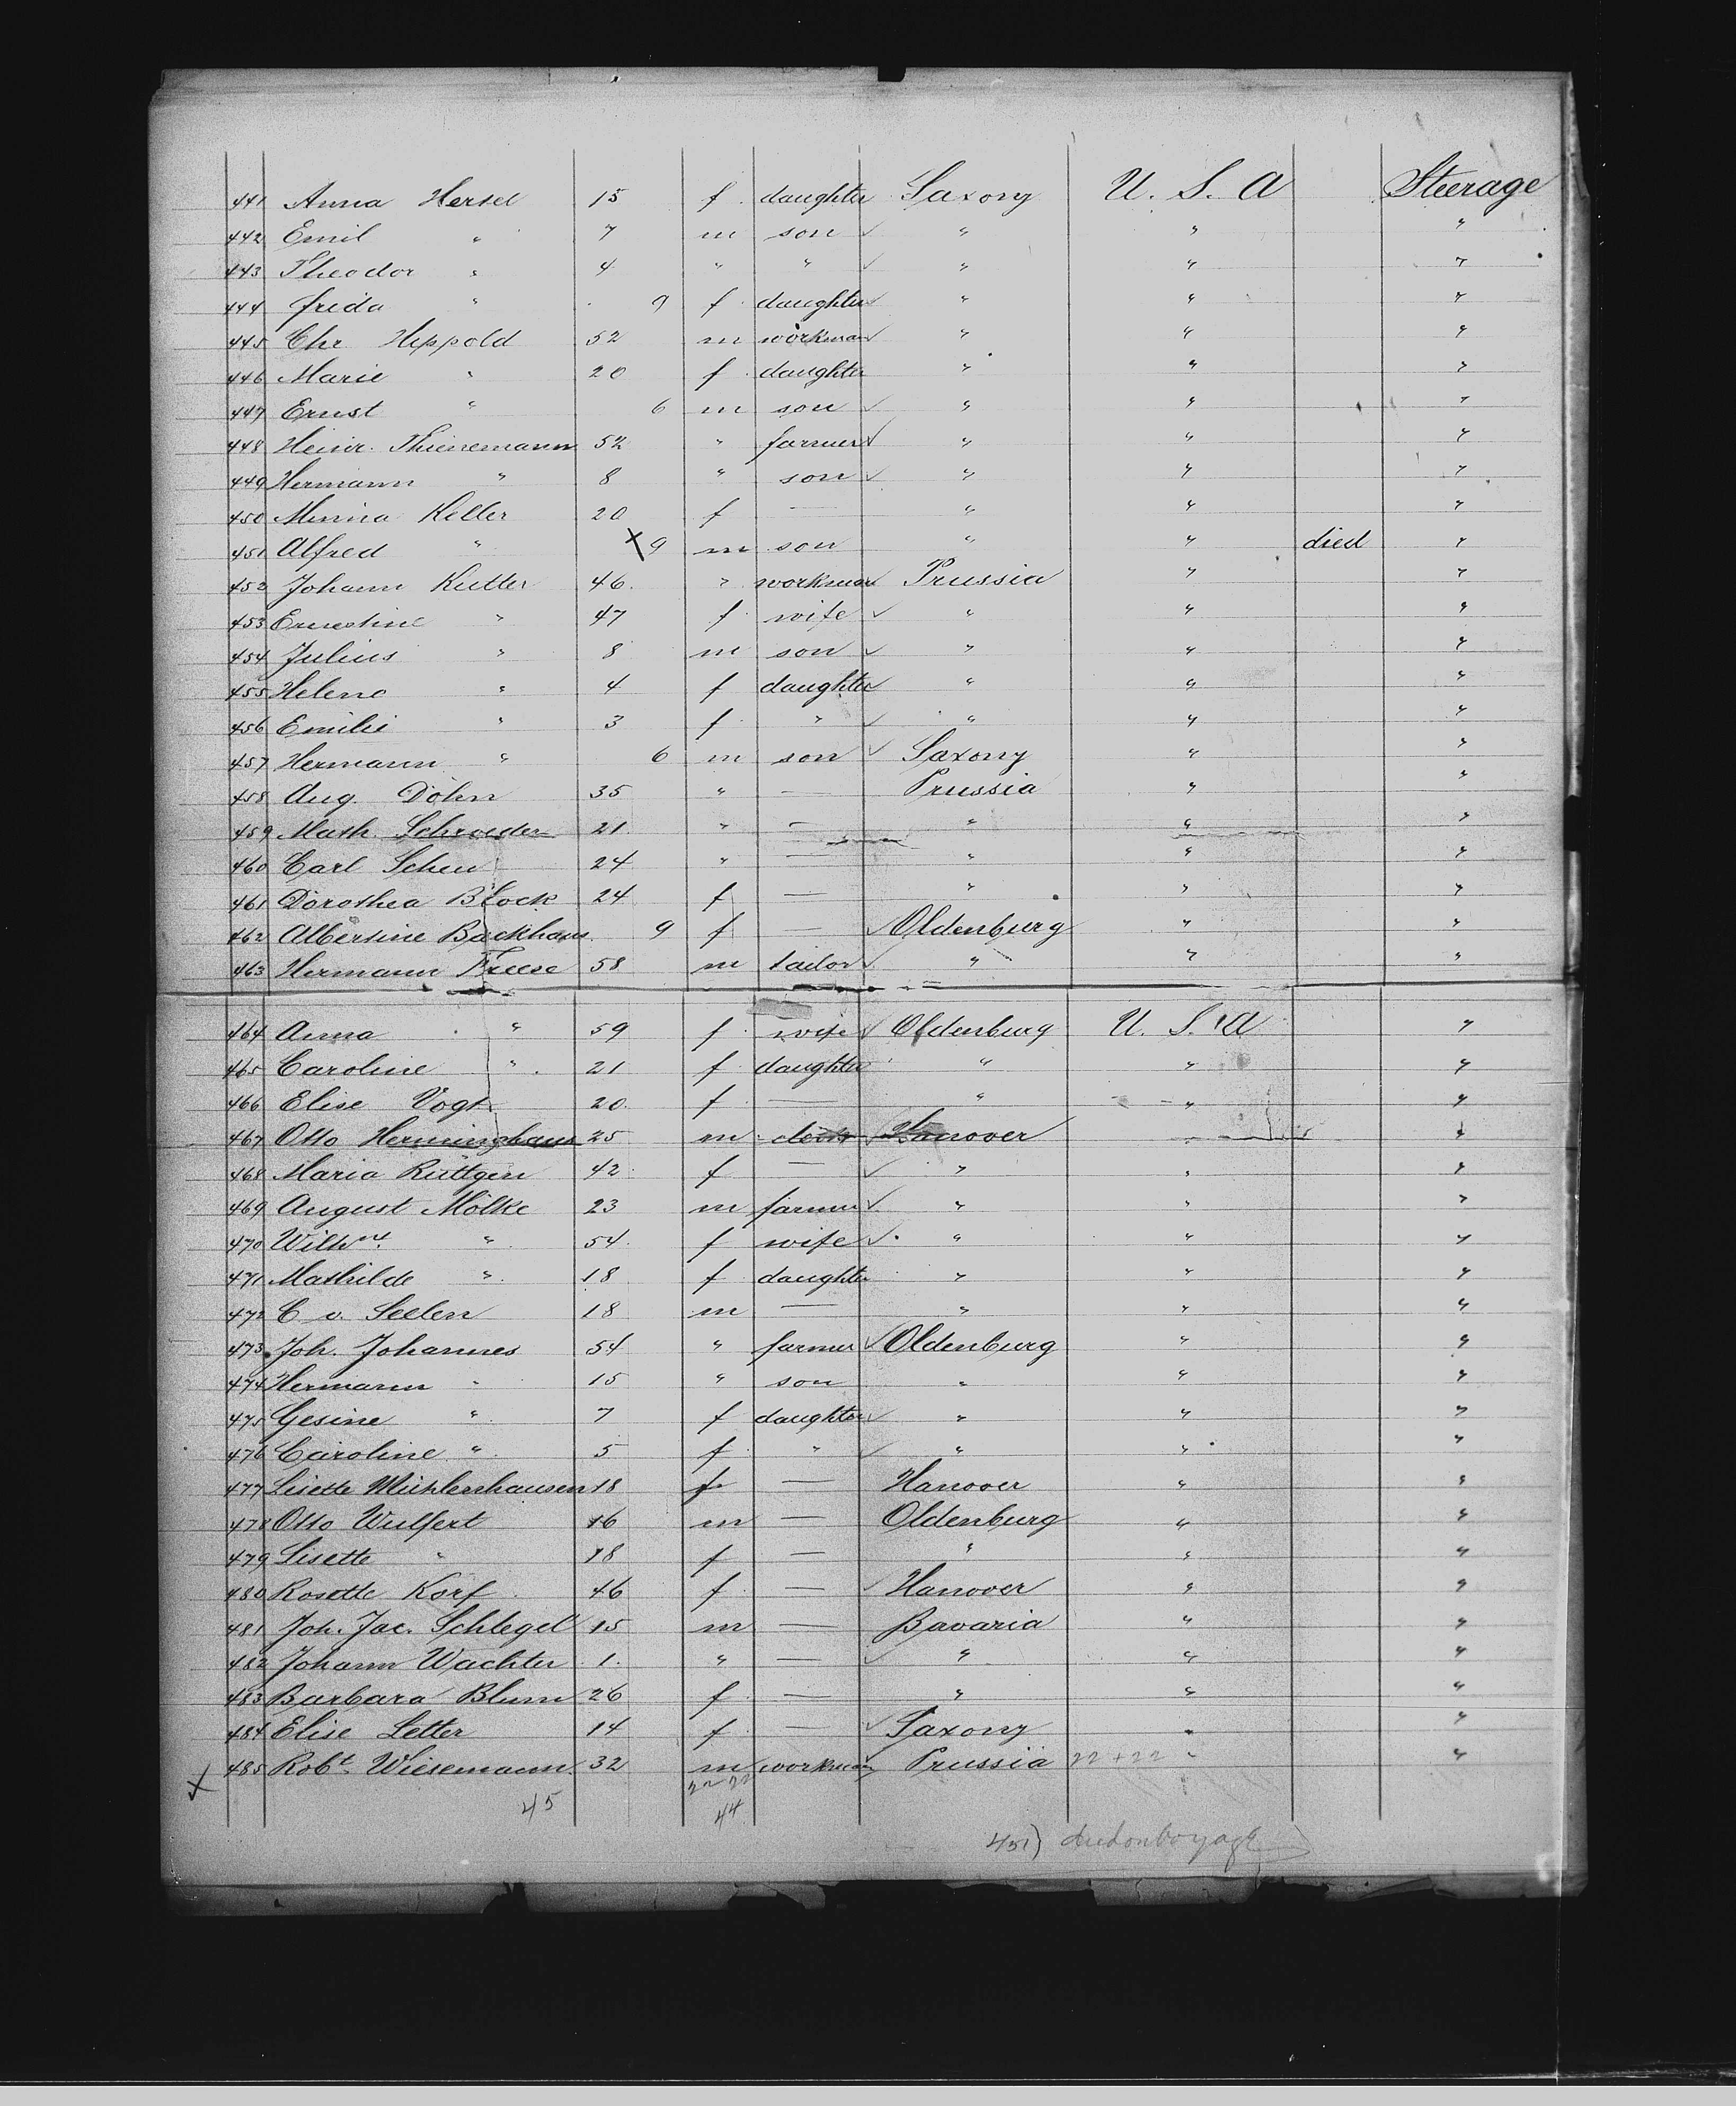 441 Anna Hersel 15 f. daughter Saxony U. S. A Steerage
442 Emil " 7 m son ✓ " " "
443 Theodor " 4 " " ✓ " " "
444 Frida " 9 f daughter ✓ " " "
445 Chr Heppold 52 m workman ✓ " " "
446 Marie " 20 f. daughter " " "
447 Ernst " 6 m son ✓ " " "
448 Heinr. Thienemann 52 " farmer ✓ " " "
449 Hermann " 8 " son ✓ " " "
450 Minna Keller 20 f — " " "
451 Alfred " X 9 m son " " died "
452 Johann Kutter 46. " workman ✓ Prussia " "
453 Ernestine " 47 f wife ✓ " " "
454 Julius " 8 m son ✓ " " "
455 Helene " 4 f daughter ✓ " " "
456 Emilie " 3 f " ✓ " " "
457 Hermann " 6 m son ✓ Saxony " "
458 Aug. Döhn 35 " — Prussia " "
459 Math Schroeder 21 " — " " "
460 Carl Scheu 24 " — " " "
461 Dorothea Block 24 f — " " "
462 Albertine Backhaus 9 f — ✓ Oldenburg " "
463 Hermann Freese 58 m tailor ✓ " " "
464 Anna " 59 f. wife ✓ Oldenburg U. S. A "
465 Caroline " 21 f daughter " " "
466 Elise Vogt 20. f — " " "
467 Otto Herminghaus 25 m clerk ✓ Hanover " "
468 Maria Rüttgen 42 f — ✓ " " "
469 August Mölke 23 m farmer ✓ " " "
470 Wilhne " 54. f wife ✓ " " "
471 Mathilde " 18 f daughter " " "
472 C v. Seelen 18 m — " " "
473 Joh. Johannes 54 " farmer ✓ Oldenburg " "
474 Hermann " 15 " son " " "
475 Gesine " 7 f daughter ✓ " " "
476 Caroline " 5 f. " ✓ " " "
477 Lisette Mühlenhausen 18 f — Hanover " "
478 Otto Wulfert 16 m — Oldenburg " "
479 Lisette " 18 f — " " "
480 Rosette Korf 46 f — ✓ Hanover " "
481 Joh. Jac. Schlegel 15 m — Bavaria " "
482 Johann Wachter 1. " — ✓ " " "
483 Barbara Blum 26 f — " " "
484 Elise Letter 14 f — ✓ Saxony " "
X 485 Robt. Wiesemann 32 m workman ✓ Prussia 22 + 22 " "
22 22
45 44
451) died on voyage